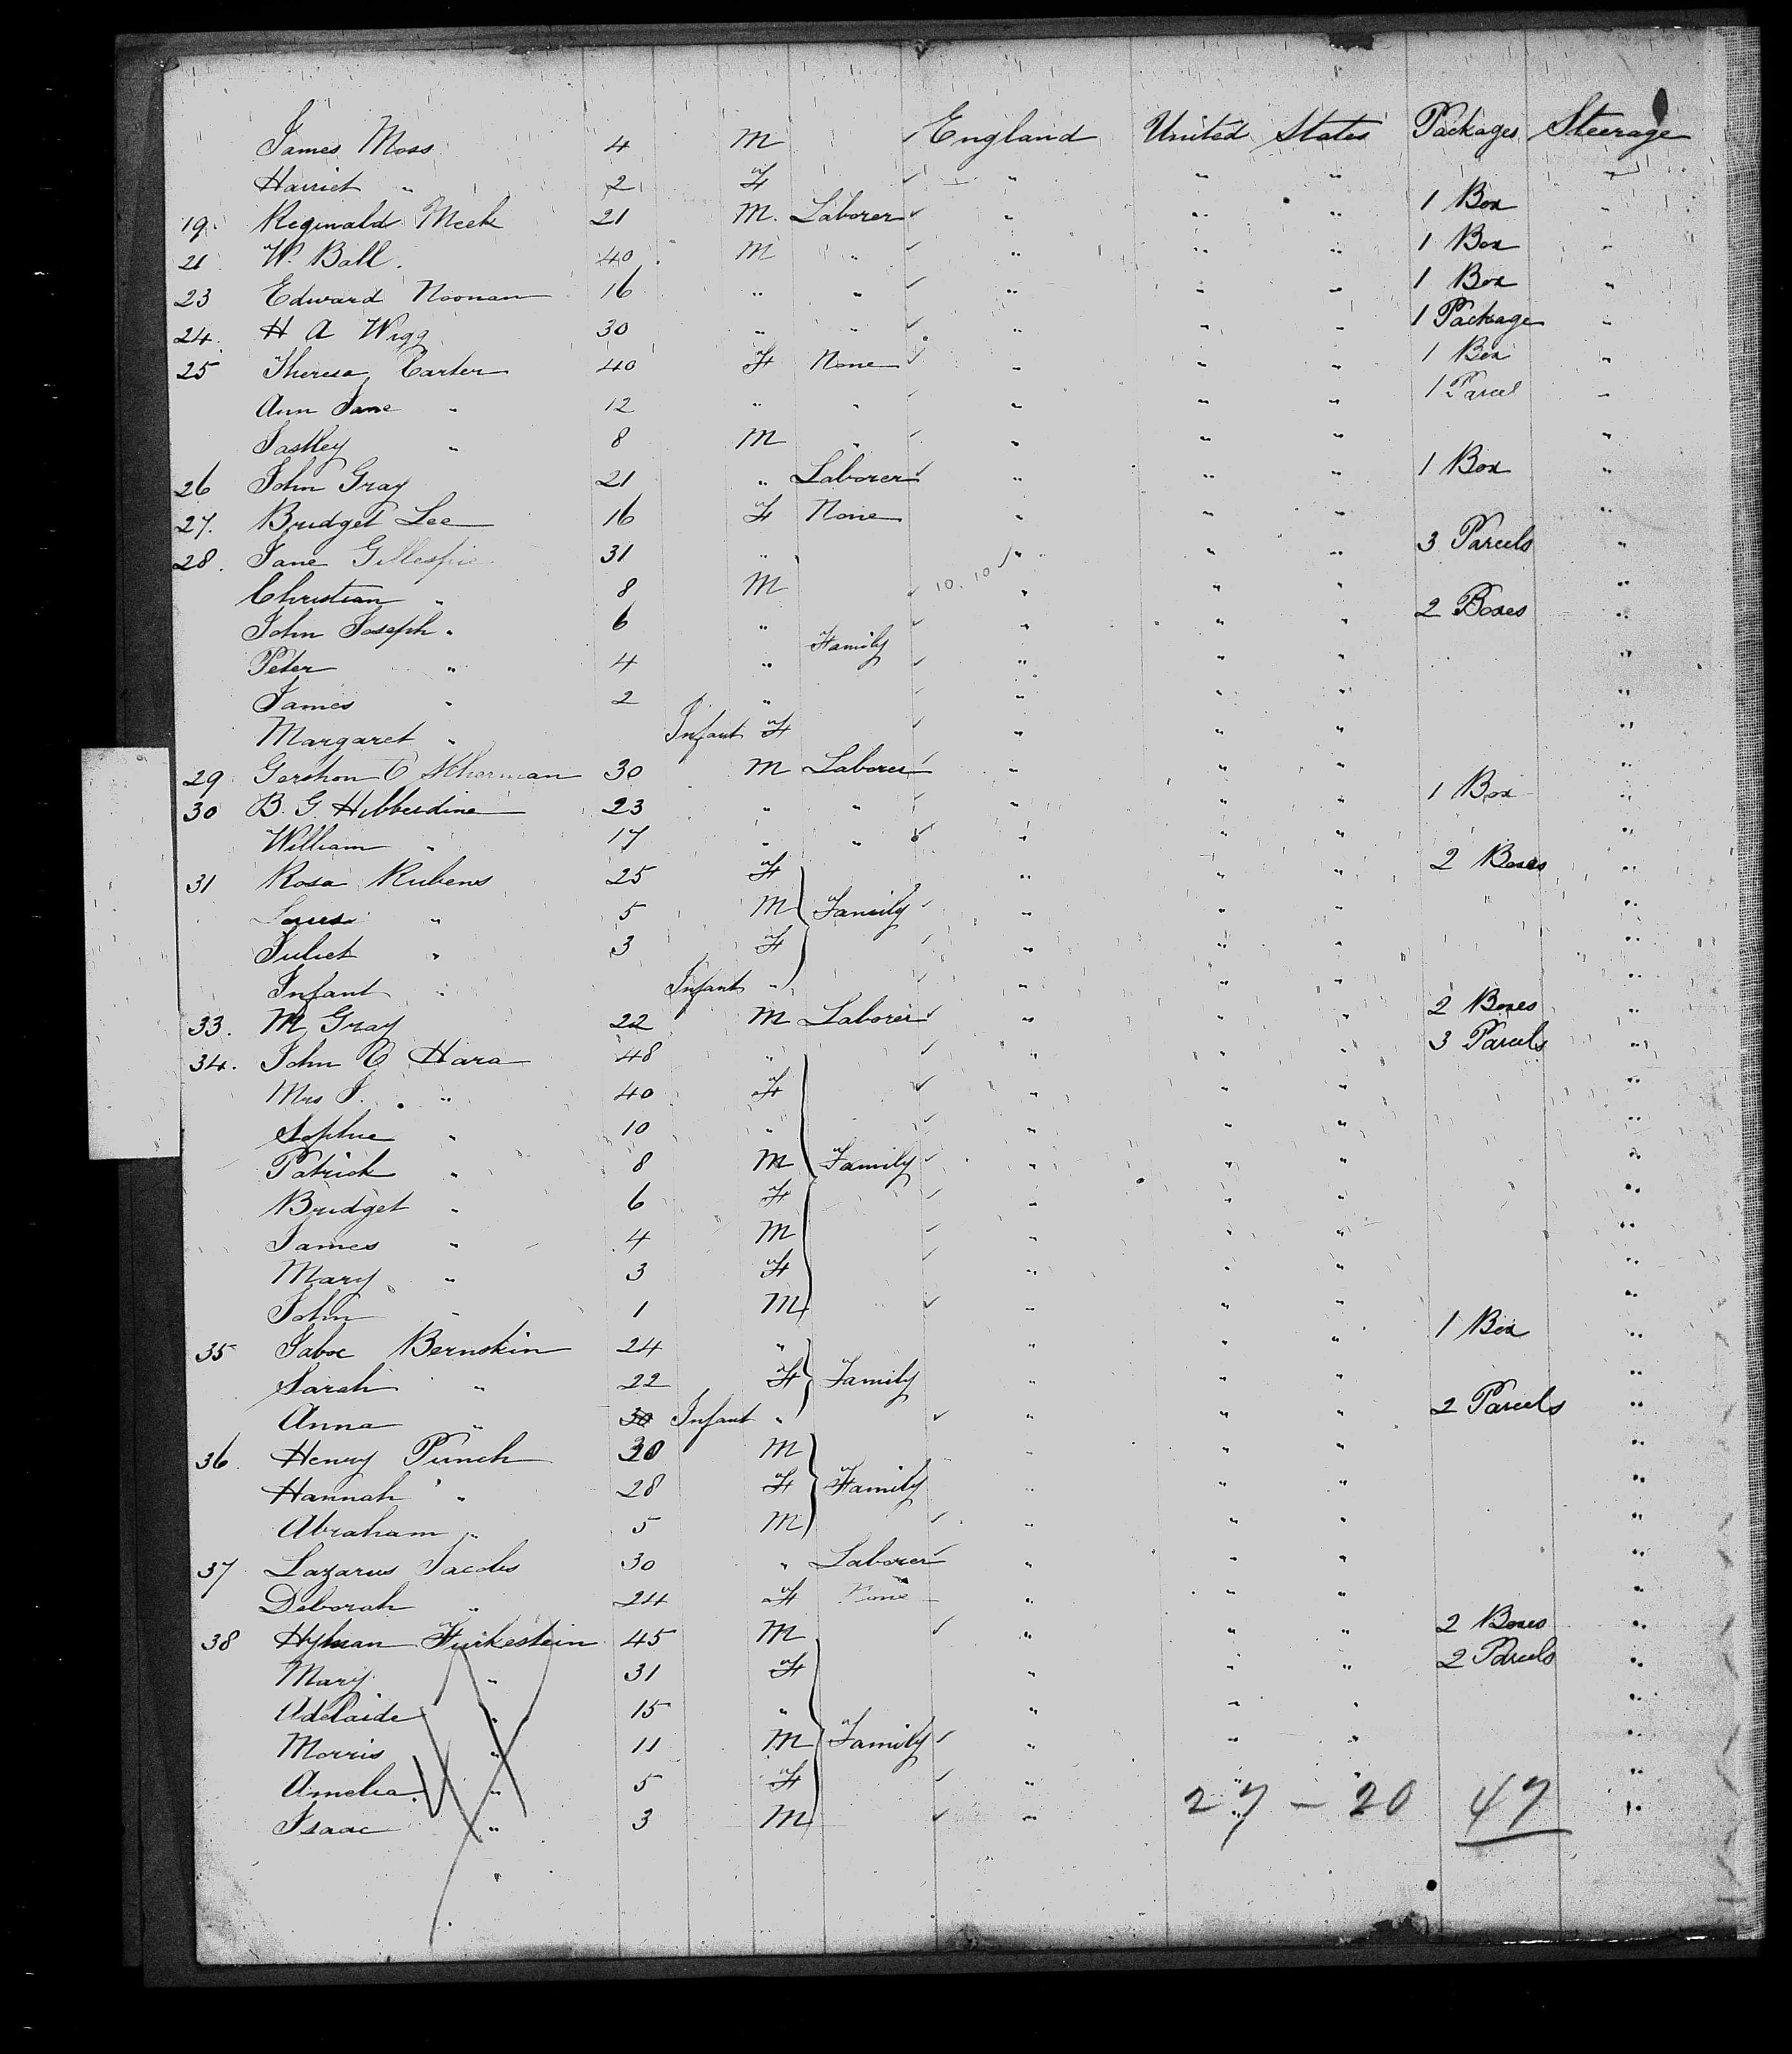 James Moss 4 M England United States Packages Steerage
Harriet " 2 F " " " "
19. Reginald Meek 21 M. Laborer " " " 1 Box "
21. W. Ball. 40 M " " " " 1 Box "
23 Edward Noonan 16 " " " " " 1 Box "
24. H A Wigg 30 " " " " " 1 Package "
25 Theresa Carter 40 F None " " " 1 Box "
Ann Jane " 12 " " " " " 1 Parcel "
" 8 M " " " " "
26 John Gray 21 " Laborer " " " 1 Box "
27. Bridget Lee 16 F None " " " "
28. Jane Gillespie 31 " " " " 3 Parcels "
Christian " 8 M 10. 10 " " " "
John Joseph " 6 " Family " " " 2 Boxes "
Peter " 4 " " " " "
James " 2 " " " " "
Margaret " Infant F " " " "
29. Gershon 30 M Laborer " " " "
30 B. G. Hibberdine 23 " " " " " 1 Box "
William " 17 " " " " " "
31 Rosa Rubens 25 F " " " 2 Boxes "
Louis " 5 M Family " " " "
Juliet " 3 F " " " "
Infant " Infant " " " " "
33. M. Gray 22 M Laborer " " " 2 Boxes "
34. John O Hara 48 " " " " 3 Parcels "
Mrs J. " 40 F " " " "
Sophie " 10 " " " " "
Patrick " 8 M Family " " " "
Bridget " 6 F " " " "
James " 4 M " " " "
Mary " 3 F " " " "
John " 1 M " " " "
35 Bernskin 24 " " " " 1 Box "
Sarah " 22 F Family " " " "
Anna " 30 Infant " " " " 2 Parcels "
36. Henry Punch 30 M " " " "
Hannah " 28 F Family " " " "
Abraham " 5 M " " " "
37 Lazarus Jacobs 30 " Laborer " " " "
Deborah " 24 F None " " " "
38 Hyman Furkestein 45 M " " " 2 Boxes "
Mary " 31 F " " " 2 Parcels "
Adelaide " 15 " " " " "
Morris " 11 M Family " " " "
Amelia " 5 F " " " "
Isaac " 3 M " " " "
27 – 20 47